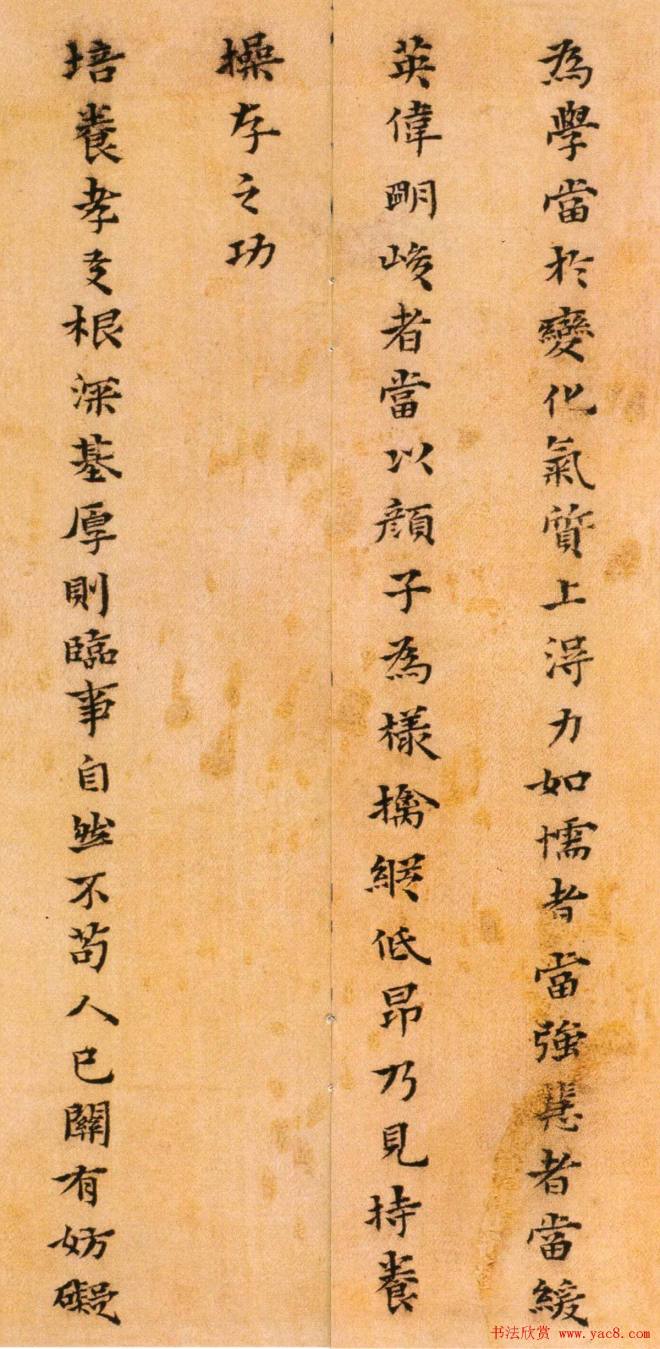 為學當於變化氣質上得力如懦者當強急者當緩
英偉眀峻者當以顏子為樣擒縱低昂乃見持養
操存之功
培養孝友根深基厚則臨事自然不苟人己關有妨礙
书法欣赏 www.yac8.com